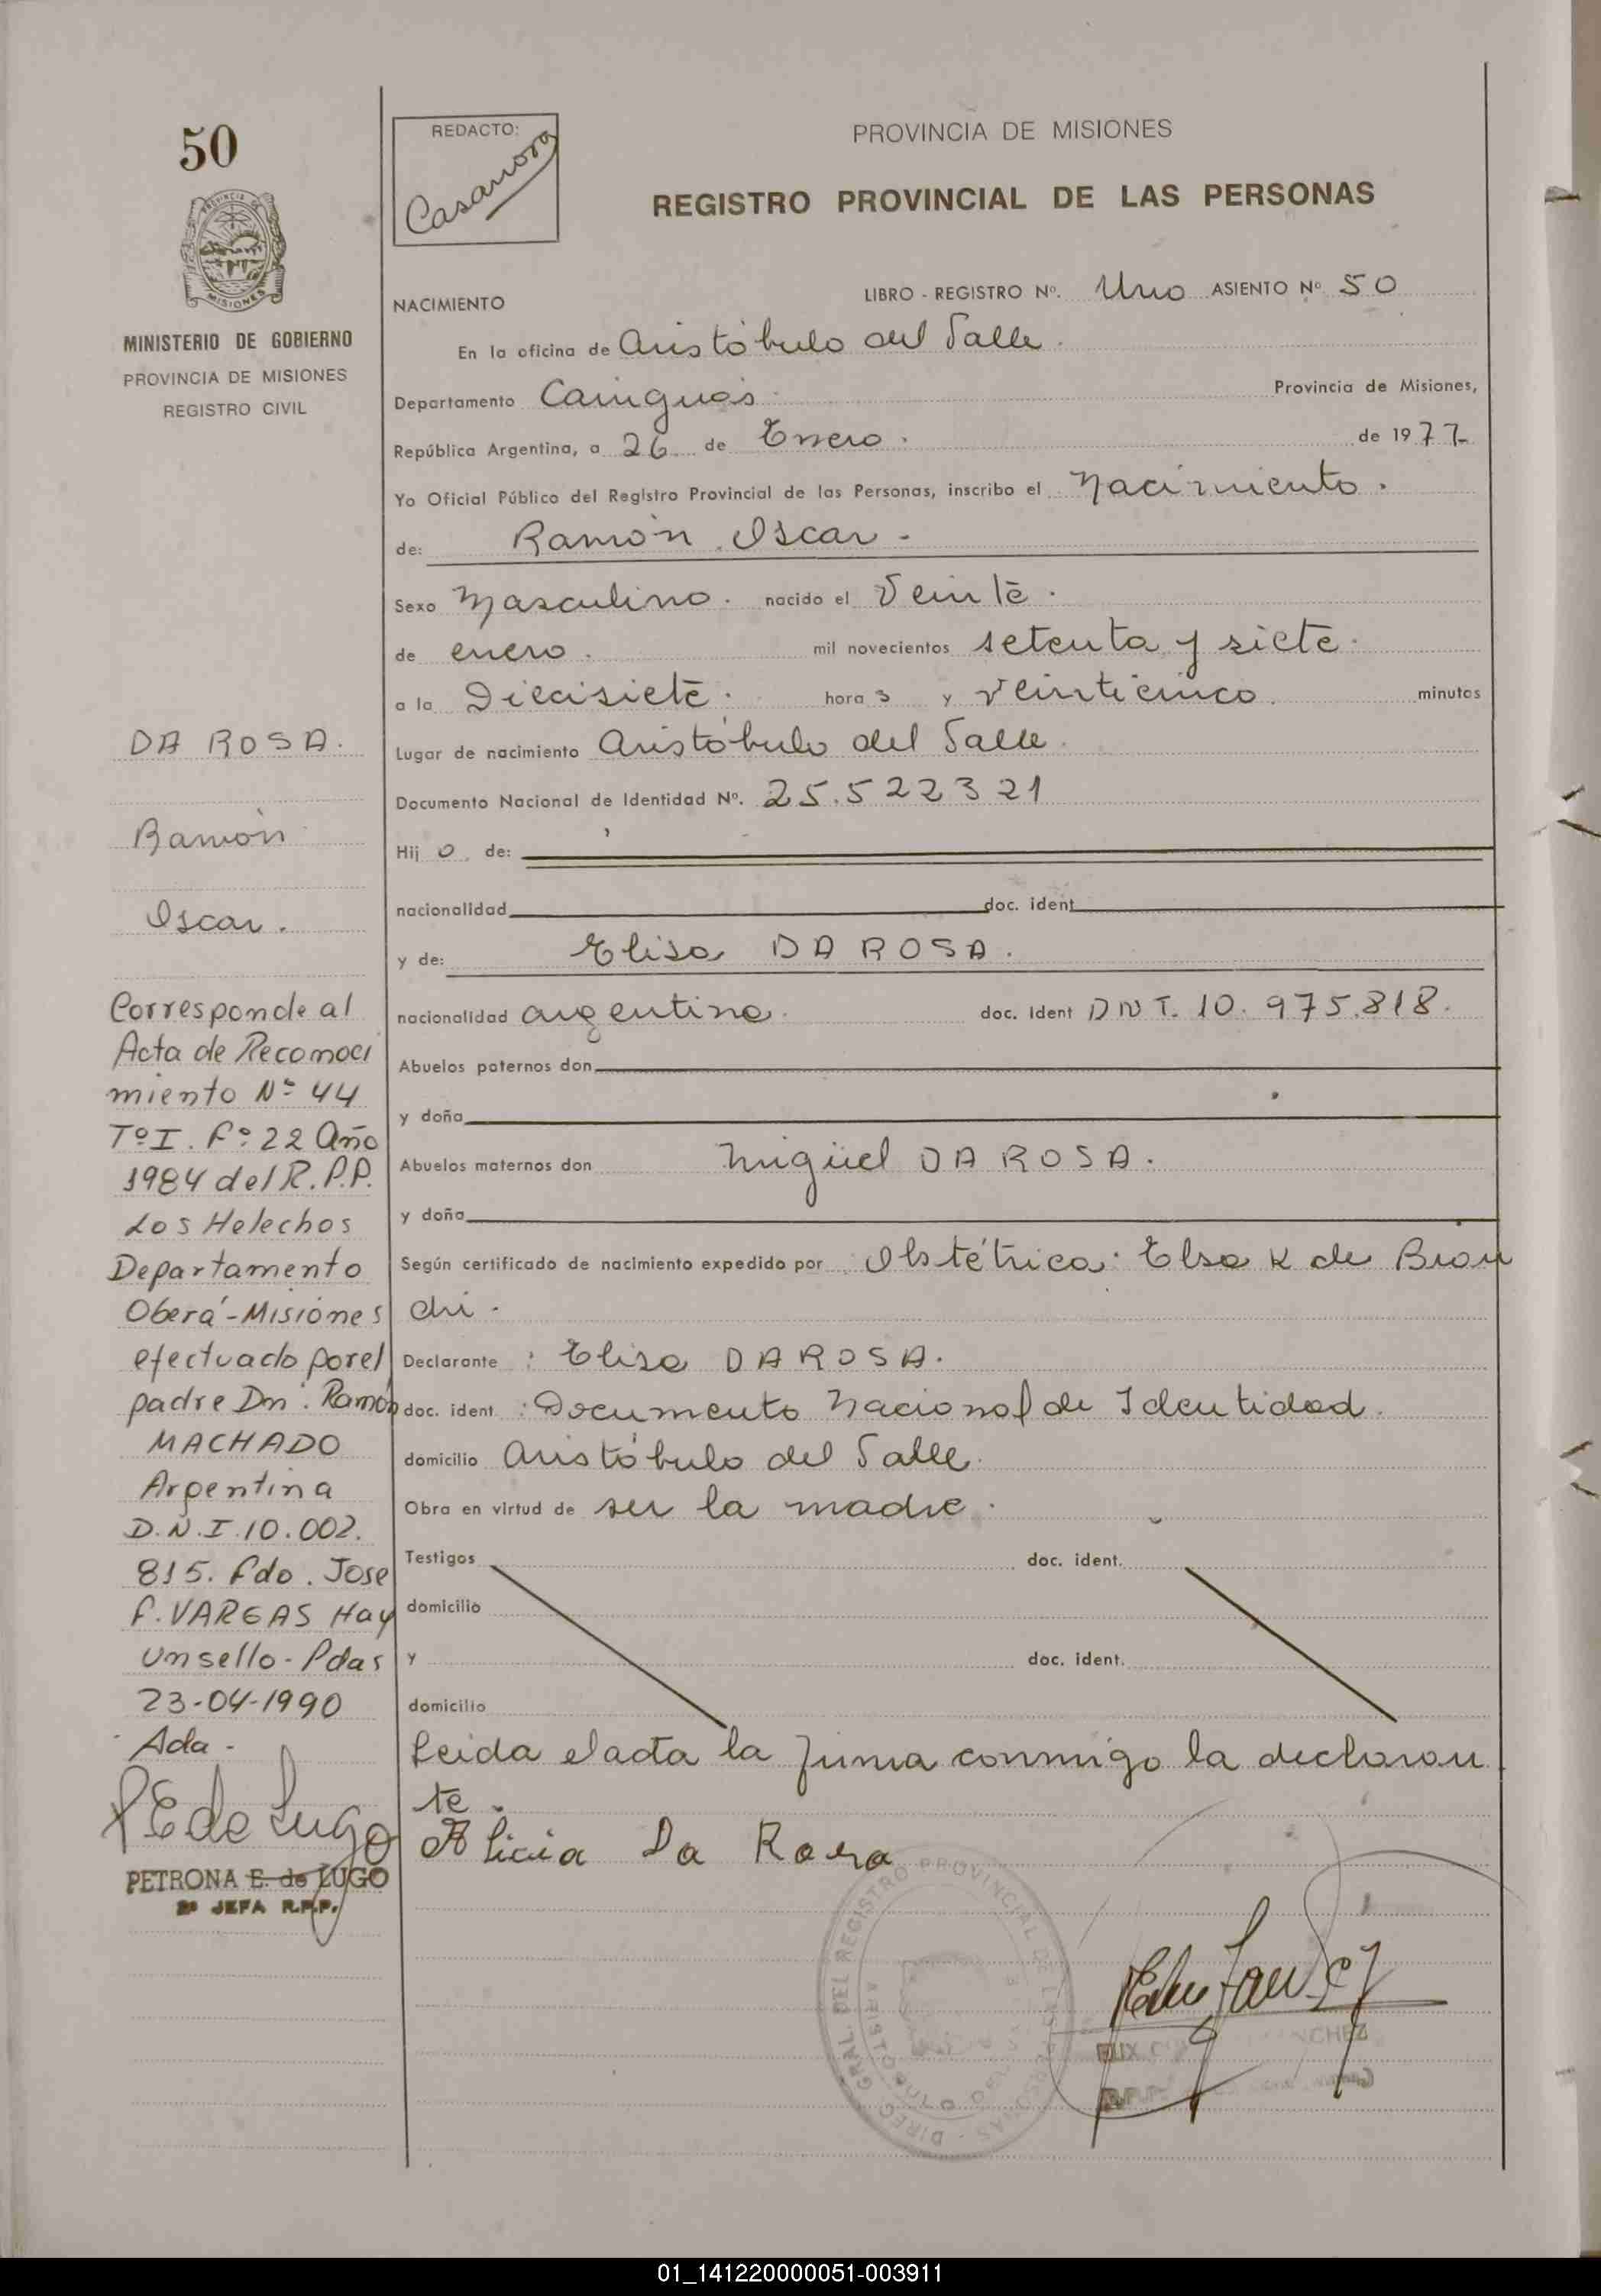 50
PROVINCIA DE MISIONES
MINISTERIO DE GOBIERNO
PROVINCIA DE MISIONES
REGISTRO CIVIL
REDACTO:
Casanova
PROVINCIA DE MISIONES
REGISTRO PROVINCIAL DE LAS PERSONAS
NACIMIENTO
LIBRO - REGISTRO Nº. Uno ASIENTO Nº 50
En la oficina de Aristóbulo del Valle.
Departamento Cainguás. Provincia de Misiones,
República Argentina, a 26 de Enero. de 1977-
Yo Oficial Público del Registro Provincial de las Personas, inscribo el Nacimiento.
de: Ramón Oscar -
Sexo Masculino. nacido el Veinte.
de enero. mil novecientos setenta y siete.
a la Diecisiete. hora s y veinticinco. minutos
Lugar de nacimiento Aristóbulo del Valle.
Documento Nacional de Identidad Nº. 25.522321
Hij o de:
nacionalidad doc. ident
y de: Elisa DA ROSA.
nacionalidad argentina. doc. ident DNI. 10.975.818.
Abuelos paternos don
y doña
Abuelos maternos don Migüel DA ROSA.
y doña
Según certificado de nacimiento expedido por Obstétrica: Elsa K de Bron
chi.
Declarante : Elisa DA ROSA.
doc. ident : Documento Nacional de Identidad.
domicilio Aristóbulo del Valle.
Obra en virtud de ser la madre.
Testigos doc. ident.
domicilio
y doc. ident.
domicilio
Leida el acta la firma conmigo la declaran
te.
Alicia Da Rosa
DA ROSA.
Ramón
Oscar.
Corresponde al
Acta de Reconoci
miento Nº 44
Tº I. Fº 22 Año
1984 del R.P.P.
Los Helechos
Departamento
Oberá-Misiones
efectuado por el
padre Dn. Ramón
MACHADO
Argentina
D.N.I.10.002.
815. Fdo. Jose
F. VARGAS Hay
un sello - Pdas
23-04-1990
Ada -
PE de Lugo
PETRONA E. de LUGO
2ª JEFA R.P.P.
DIREC. GRAL. DEL REGISTRO PROVINCIAL DE LAS PERSONAS
01_141220000051-003911